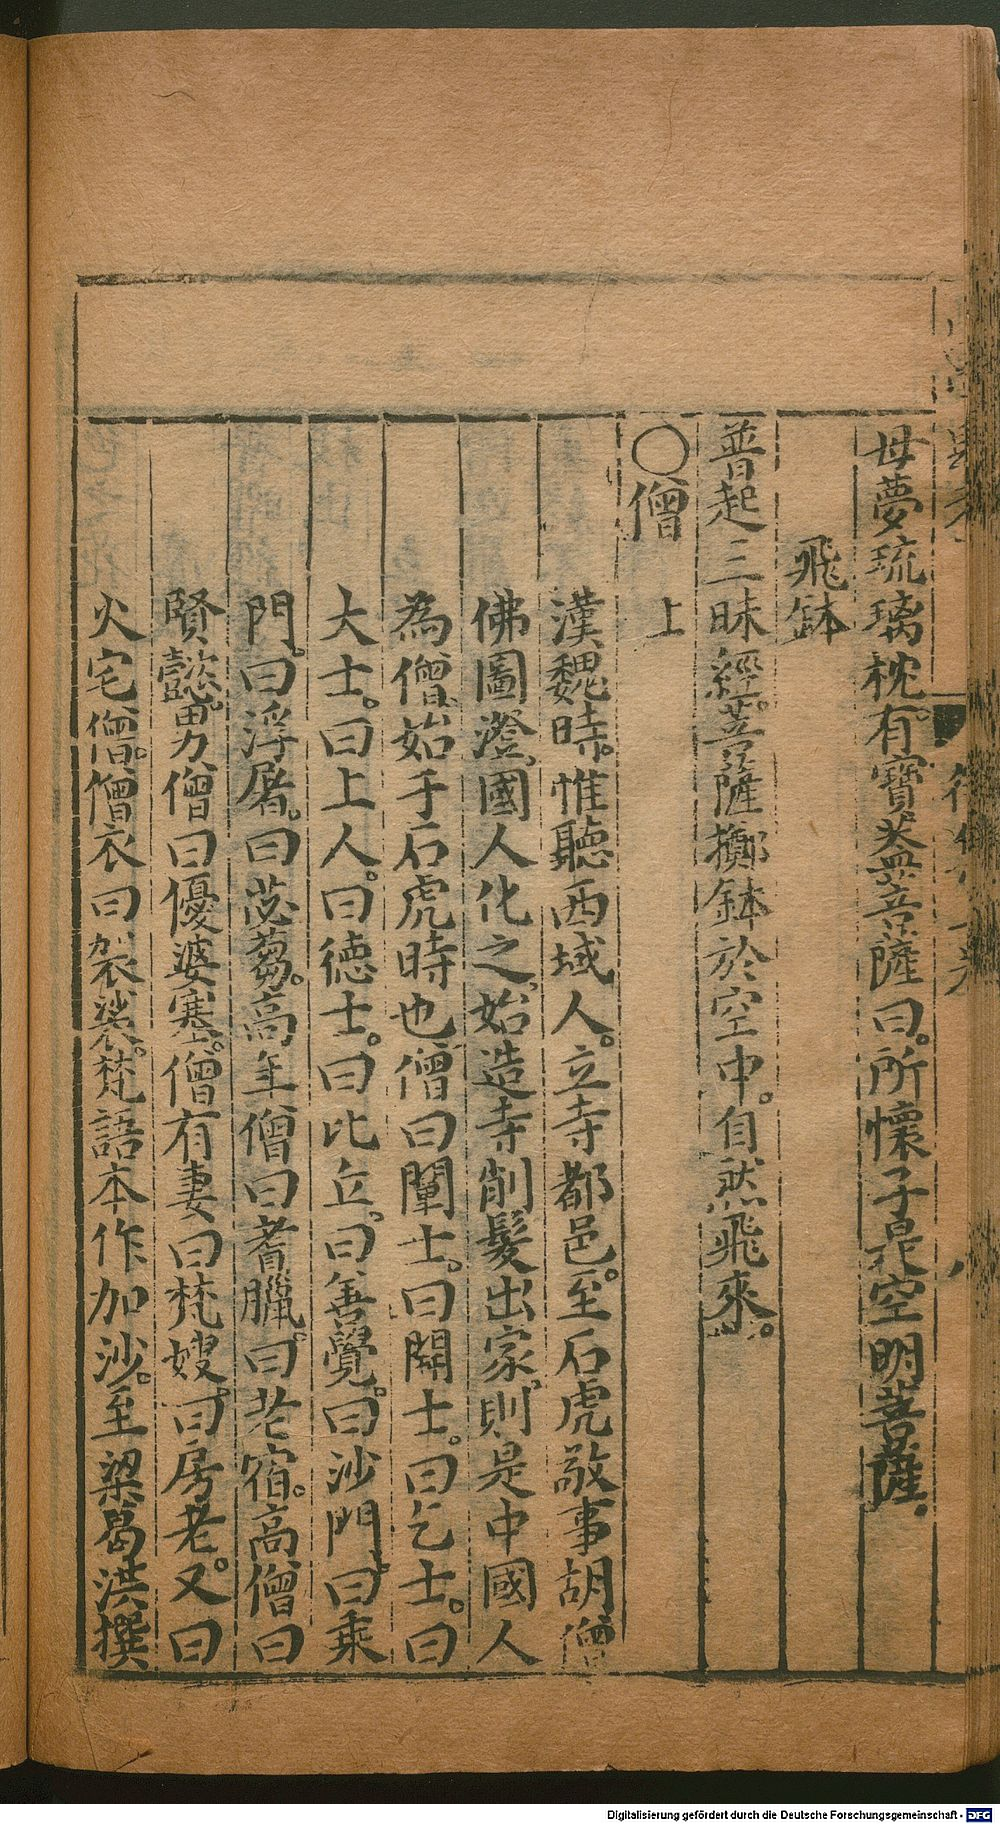 母夢琉璃枕。有寶盖菩薩曰。所懷子是空明菩薩。
飛鉢
普起三昧經。菩薩擲鉢於空中。自然飛來。
○僧 上
漢魏時。惟聽西域人。立寺都邑。至石虎敬事胡僧
佛圖澄。國人化之。始造寺削髮出家。則是中國人
為僧。始于石虎時也。僧曰闡士。曰開士。曰乞士。曰
大士。曰上人。曰德士。曰比丘。曰善覺。曰沙門。曰乘
門。曰浮屠。曰苾蒭。高年僧曰耆臘。曰老宿。高僧曰
賢懿。男僧曰優婆塞。僧有妻曰梵嫂。曰房老。又曰
火宅僧。僧衣曰袈裟。梵語本作加沙。至梁葛洪撰
Digitalisierung gefördert durch die Deutsche Forschungsgemeinschaft - DFG